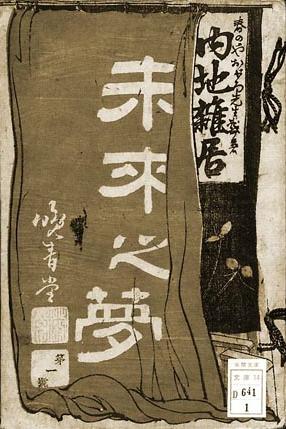 春のやおぼろ先生戯著
内地雑居
未来之夢
晩青堂
第一號
文庫 14
D 641
1